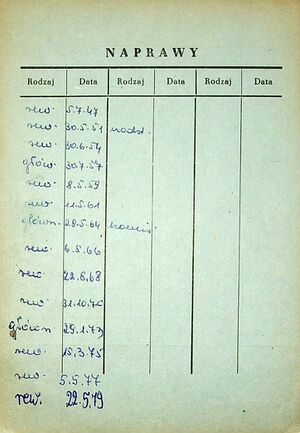 NAPRAWY
Rodzaj Data Rodzaj Data Rodzaj Data
rew. 5.7.47
rew. 30.5.51
rew. 30.6.54
główn. 30.7.57
rew. 8.5.59
rew. 11.5.61
główn. 28.5.64
rew. 6.5.66
rew. 22.8.68
rew. 31.10.70
główn 29.1.73
rew. 15.3.75
rew. 5.5.77
rew. 22.5.79